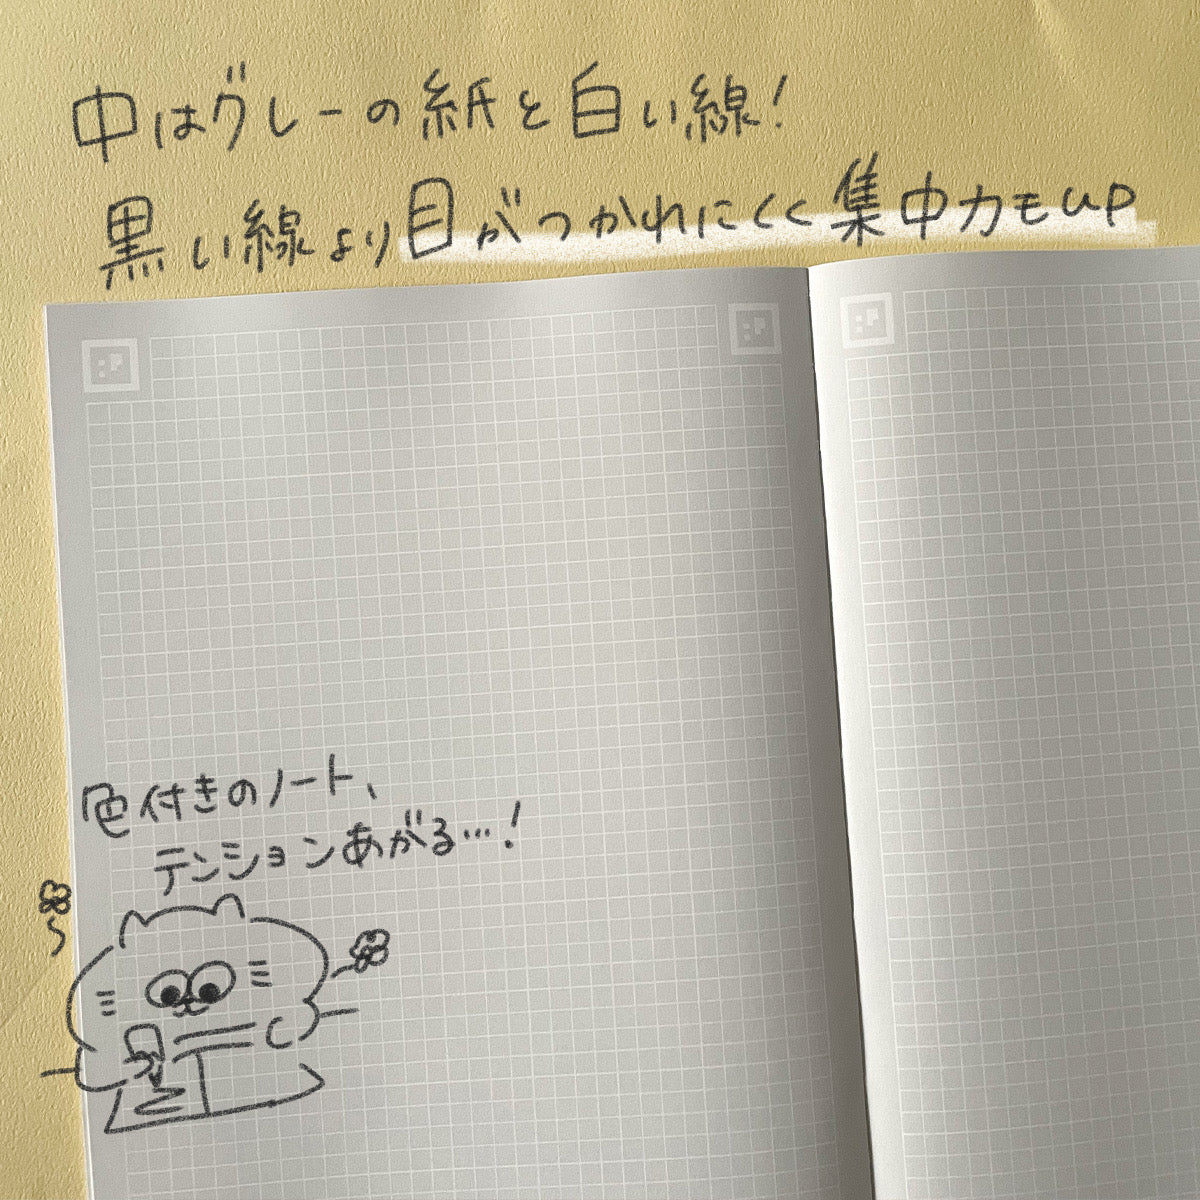 中はグレーの紙と白い線!
黒い線より目がつかれにくく集中力もUP
色付きのノート、
テンションあがる…!